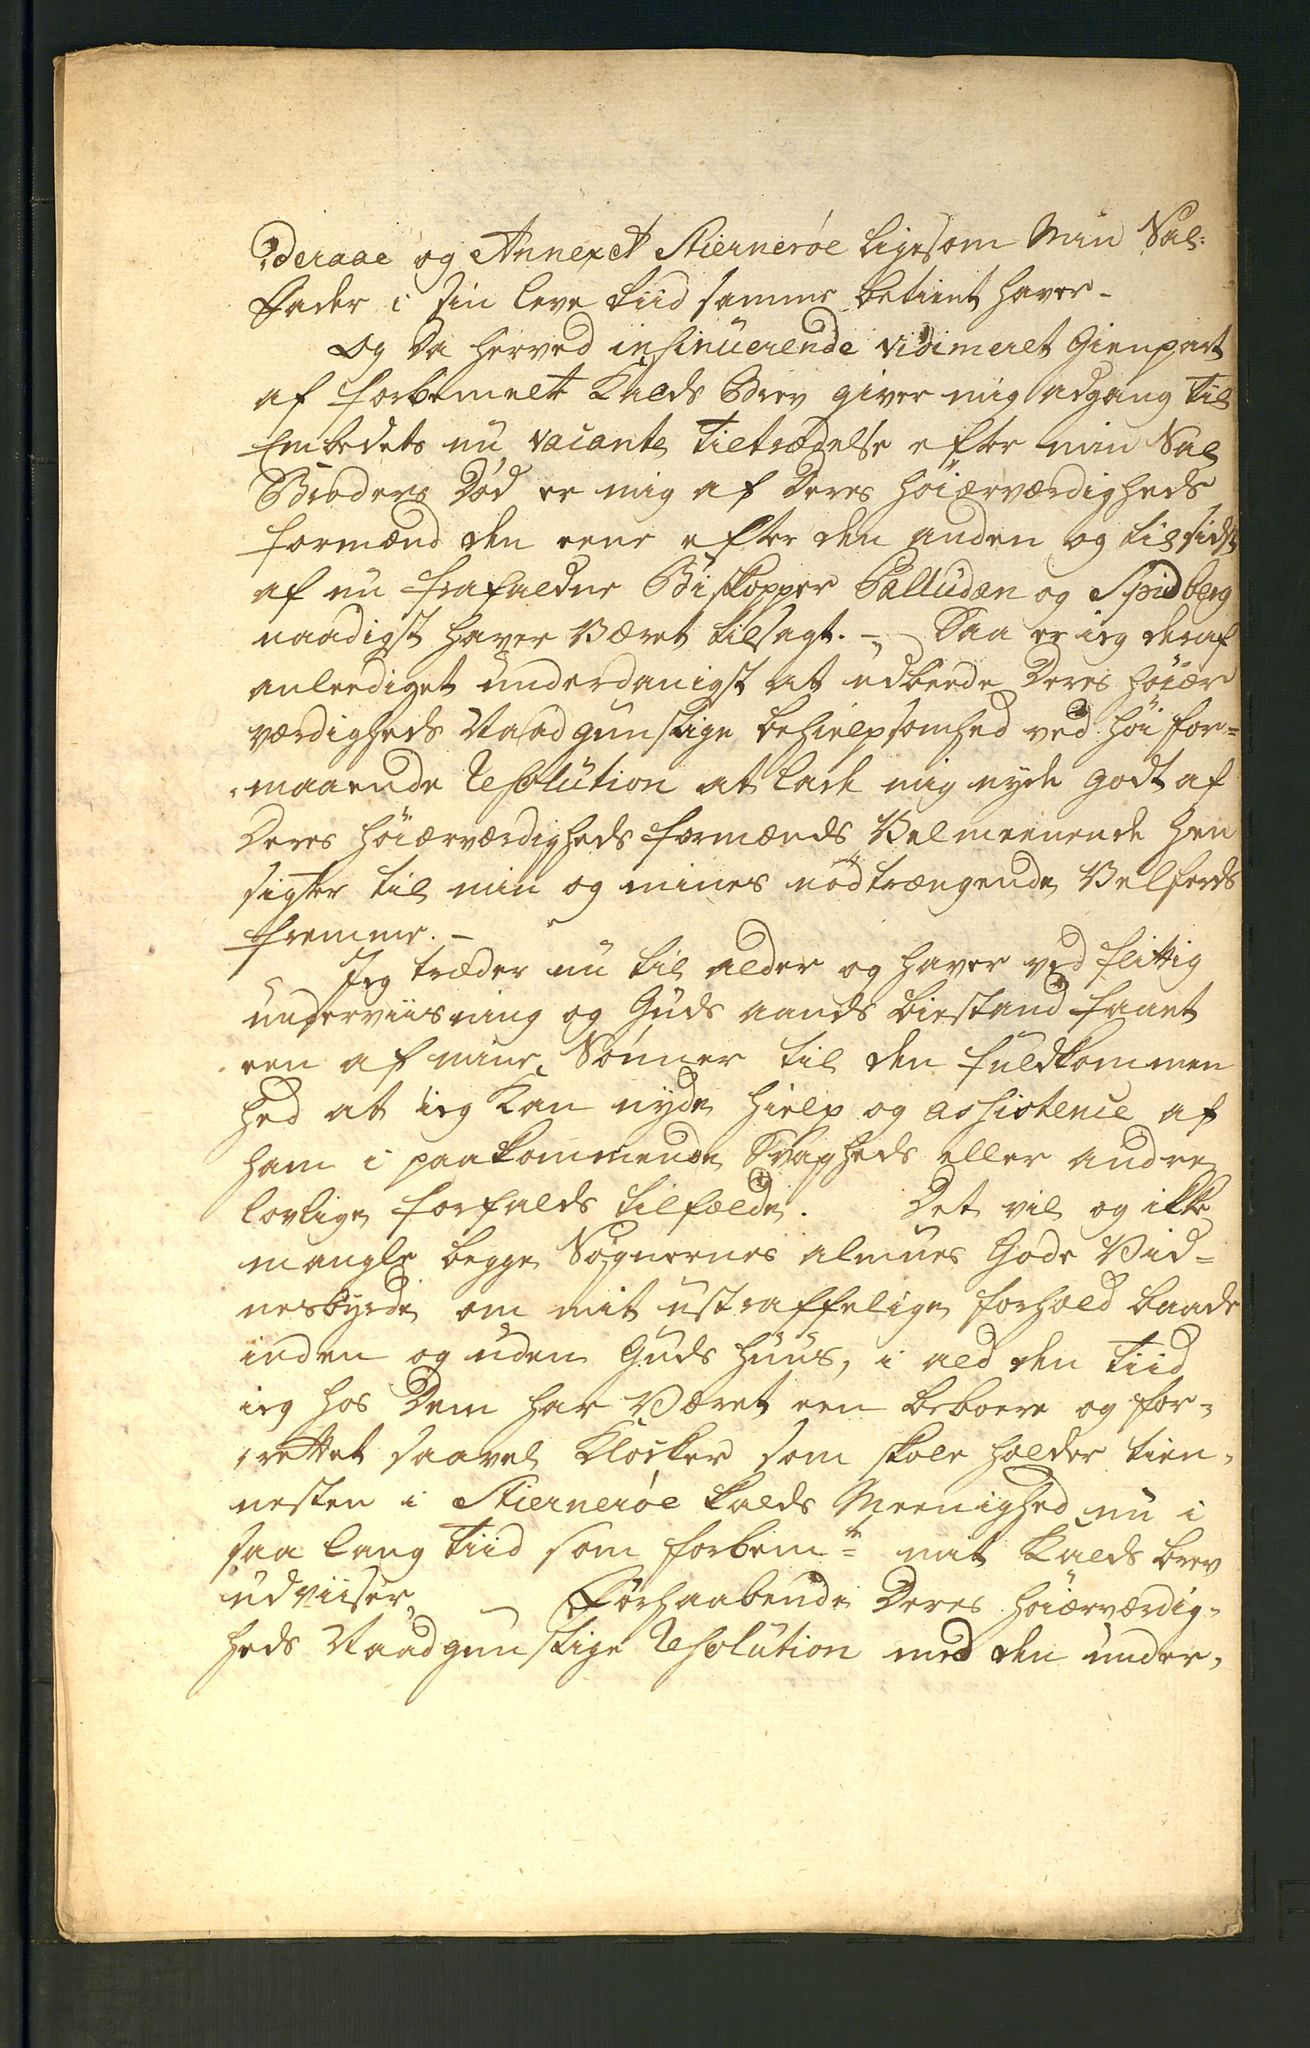 Oderaae og Annexet Stiernerøe ligesom Min Sal:
Fader i sin leve tiid samme betient haver -
Og Da herved insinuerende vidimeret Gienpart
af forbemelte Kalds Brev giver mig adgang til
Embedets nu vacante tiltrædelse efter min Sal
Broders Død er mig af Deres høiærværdigheds
formænd den eene efter den anden og til sidst
af nu frafaldne Biskopper Palludan og Spidberg
naadigst haver Været tilsagt. - Saa er ieg deraf
anlediget underdanigst at udbeede Deres høiær
værdigheds Naadgunstige behielpsomhed ved høi for=
maaende Resolution at lade mig nyde godt af
Deres høiærværdigheds formænds Velmeenende hen
sigter til min og mines nødtrængende Velferds
fremme. -
Jeg træder nu til alder og haver ved flittig
underviisning og Guds aands biestand faaet
een af mine Sønner til den fuldkommen
hed at ieg Kan nyde hielp og assistence af
ham i paakommende Svagheds eller andre
lovlige forfalds tilfælde. Det vil og ikke
mangle begge Sognernes almues Gode Vid=
nesbyrde om mit ustraffelige forhold baade
inden og uden Guds huus, i ald den tiid
ieg hos Dem har Været een beboere og for=
rettet saavel Klocker som skole holder tien,
nesten i Stiernerøe kalds Meenighed nu i
saa lang tiid som forbemte mit Kalds brev
udviiser, - Forhaabende Deres høiærværdig=
heds Naadgunstige Resolution med den under,